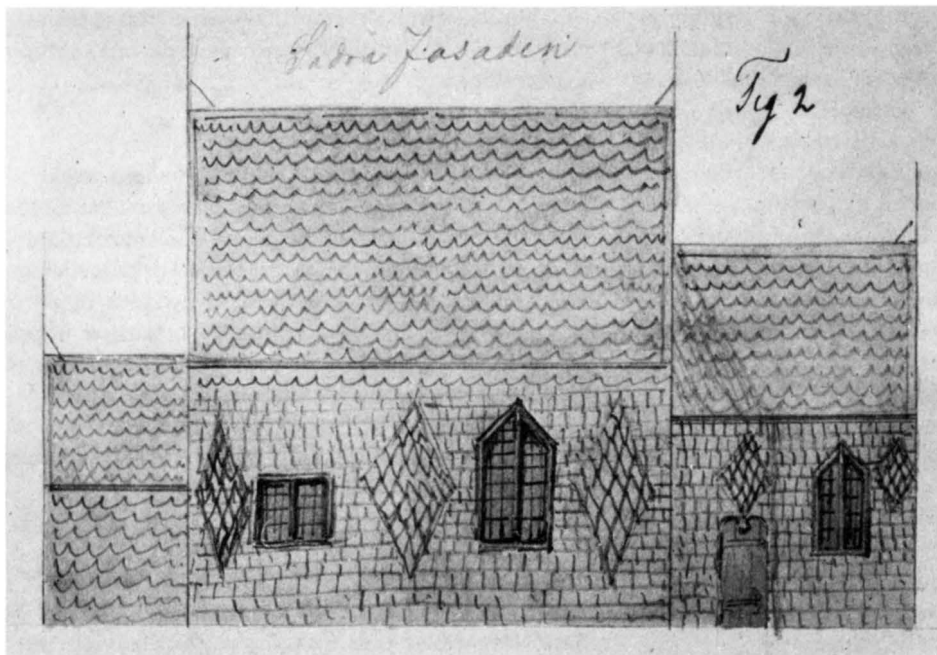 Södra Fasaden
Fig 2